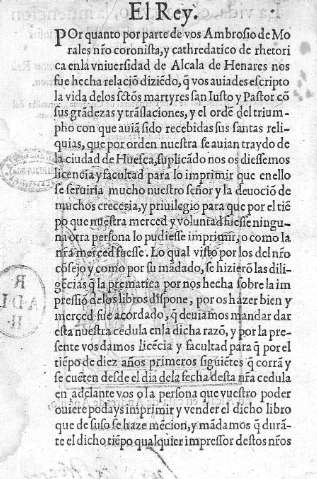 El Rey.
POr quanto por parte de vos Ambrosio de Mo
rales nr̃o coronista, y cathredatico de rhetori
ca enla vniuersidad de Alcala de Henares nos
fue hecha relaciõ diziẽdo, q̃ vos auiades escripto
la vida delos sctõs martyres san Iusto y Pastor cõ
sus grãdezas y trãslaciones, y el ordẽ del trium-
pho con que auiã sido recebidas sus santas reli-
quias, que por orden nuestra se auian traydo de
la ciudad de Huesca, suplicãdo nos os diessemos
licencia y facultad para lo imprimir que enello
se seruiria mucho nuestro señor y la deuociõ de
muchos creceria, y priuilegio para que por el tiẽ
po que nuestra merced y voluntad fuesse ningu-
na otra persona lo pudiesse imprimir, o como la
nr̃a merced fuesse. Lo qual visto por los del nr̃o
cõsejo y como por su mãdado, se hizierõ las dili-
gẽcias q̃ la prematica por nos hecha sobre la im
pressiõ delos libros dispone, por os hazer bien y
merced fue acordado, q̃ deuiamos mandar dar
esta nuestra cedula enla dicha razõ, y por la pre-
sente vos damos licẽcia y facultad para q̃ por el
tiẽpo de diez años primeros siguiẽtes q̃ corrã y
se cuẽten desde el dia dela fecha desta nr̃a cedula
en adelante vos o la persona que vuestro poder
ouiere podays imprimir y vender el dicho libro
que de suso se haze mẽcion, y mãdamos q̃ durã-
te el dicho tiẽpo qualquier impressor destos nr̃os